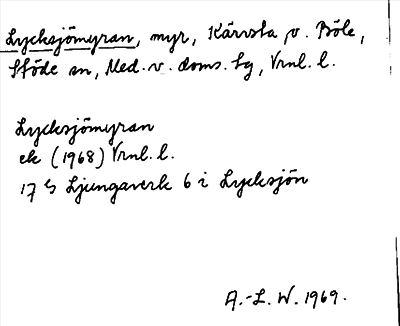 Lycksjömyran, myr, Kärvsta o. Böle,
Stöde sn, Med. v. doms. tg, Vrnl. l.
Lycksjömyran
ek (1968) Vrnl. l.
17 G Ljungaverk 6 i Lycksjön
A.-L. W. 1969.